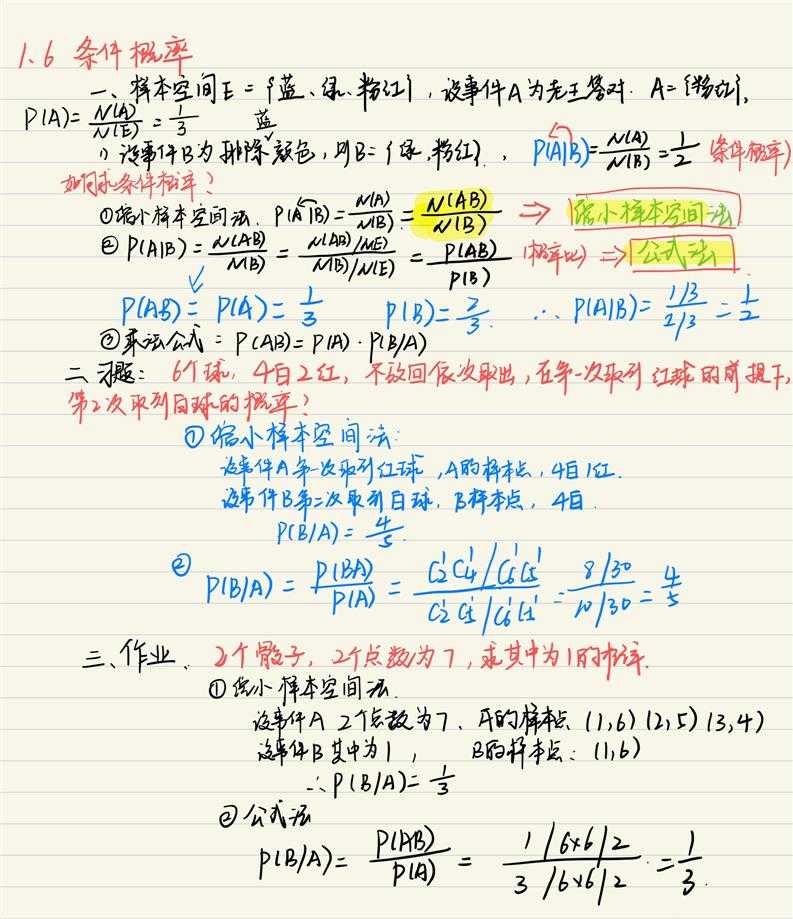 1.6 条件概率
一、样本空间E = {蓝、绿、粉红}，设事件A为老王答对. A={粉红},
P(A)= N(A)/N(E) = 1/3
蓝
1) 设事件B为排除颜色，则B={绿,粉红}. , P(A|B)= N(A)/N(B) = 1/2 (条件概率)
如何求条件概率？
①缩小样本空间法. P(A|B)= N(A)/N(B) = N(AB)/N(B) ⇒ 缩小样本空间法
② P(A|B) = N(AB)/N(B) = N(AB)/N(E) / N(B)/N(E) = P(AB)/P(B) (概率比) ⇒ 公式法
P(AB)= P(A)= 1/3 P(B)= 2/3. ∴ P(A|B)= 1/3 / 2/3 = 1/2
③乘法公式：P(AB)=P(A)·P(B/A)
二、习题： 6个球，4白2红，不放回依次取出，在第一次取到红球的前提下，
第2次取到白球的概率？
①缩小样本空间法:
设事件A第一次取到红球，A的样本点，4白1红.
设事件B第二次取到白球，B样本点，4白.
P(B/A) = 4/5.
② P(B/A) = P(BA)/P(A) = C₂¹C₄¹/C₆¹C₅¹ / C₂¹C₅¹/C₆¹C₅¹ = 8/30 / 10/30 = 4/5
三、作业、 2个骰子，2个点数为7，求其中为1的概率.
①缩小样本空间法.
设事件A 2个点数为7、A的样本点 (1,6) (2,5) (3,4)
设事件B其中为1， B的样本点：(1,6)
∴P(B/A)= 1/3
②公式法
P(B/A)= P(AB)/P(A) = 1/6×6/2 / 3/6×6/2 = 1/3.